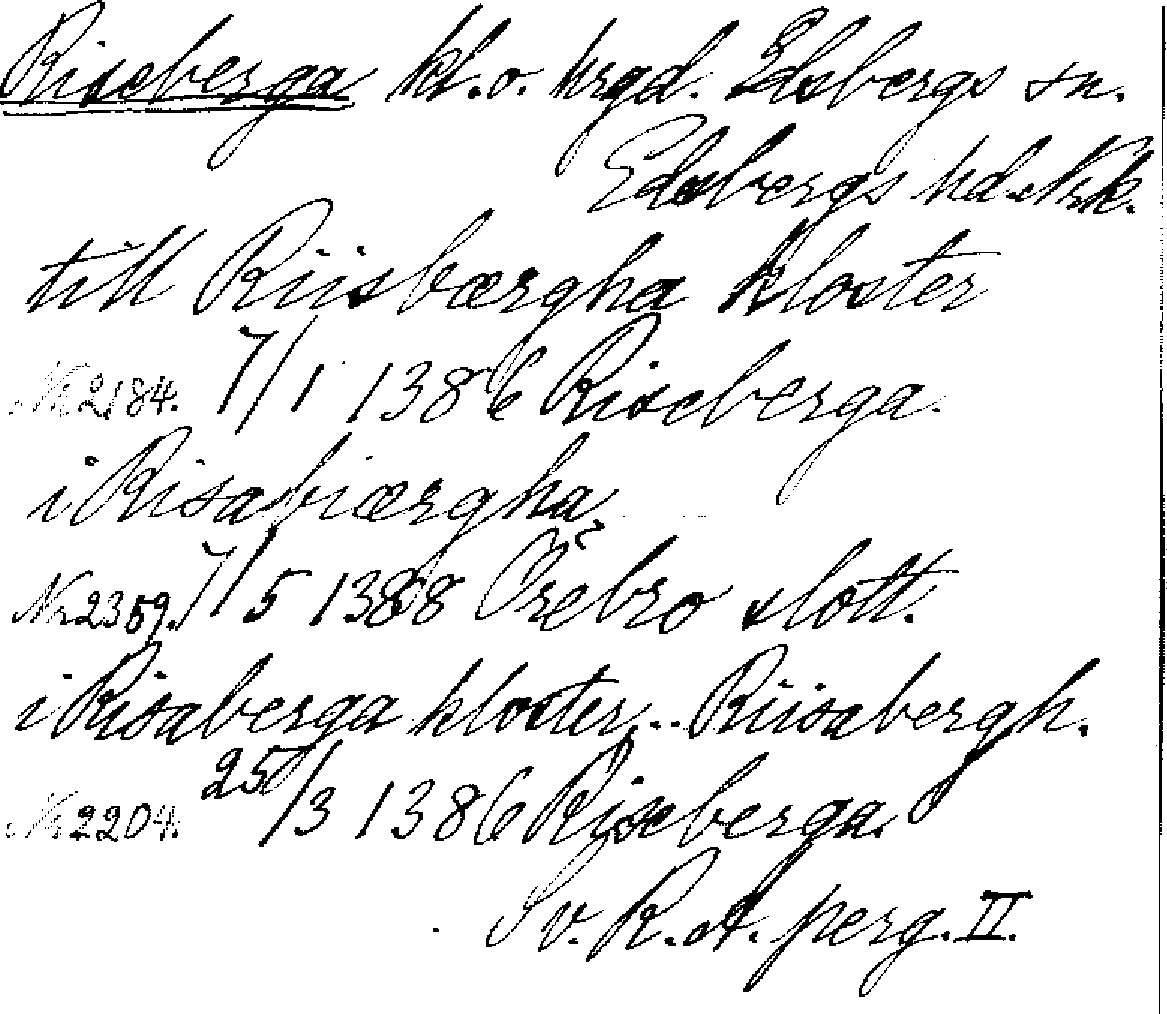 Riseberga kl. o. krgd. Edsbergs sn.
Edsbergs hd. Nrk.
till Riisbærgha kloster
Nr 2184. 7/1 1386 Riseberga.
i Risabiærgha
Nr 2359. 7/5 1388 Örebro slott.
i Risaberga kloster.. Riisabergh.
Nr 2204. 25/3 1386 Riseberga.
Sv. R. A. perg. II.